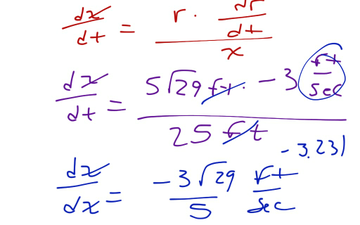 dx/dt = (r · dr/dt) / x
dx/dt = (5√29 ft · -3 ft/sec) / (25 ft)
-3.231
dx/dx = (-3√29)/5 ft/sec